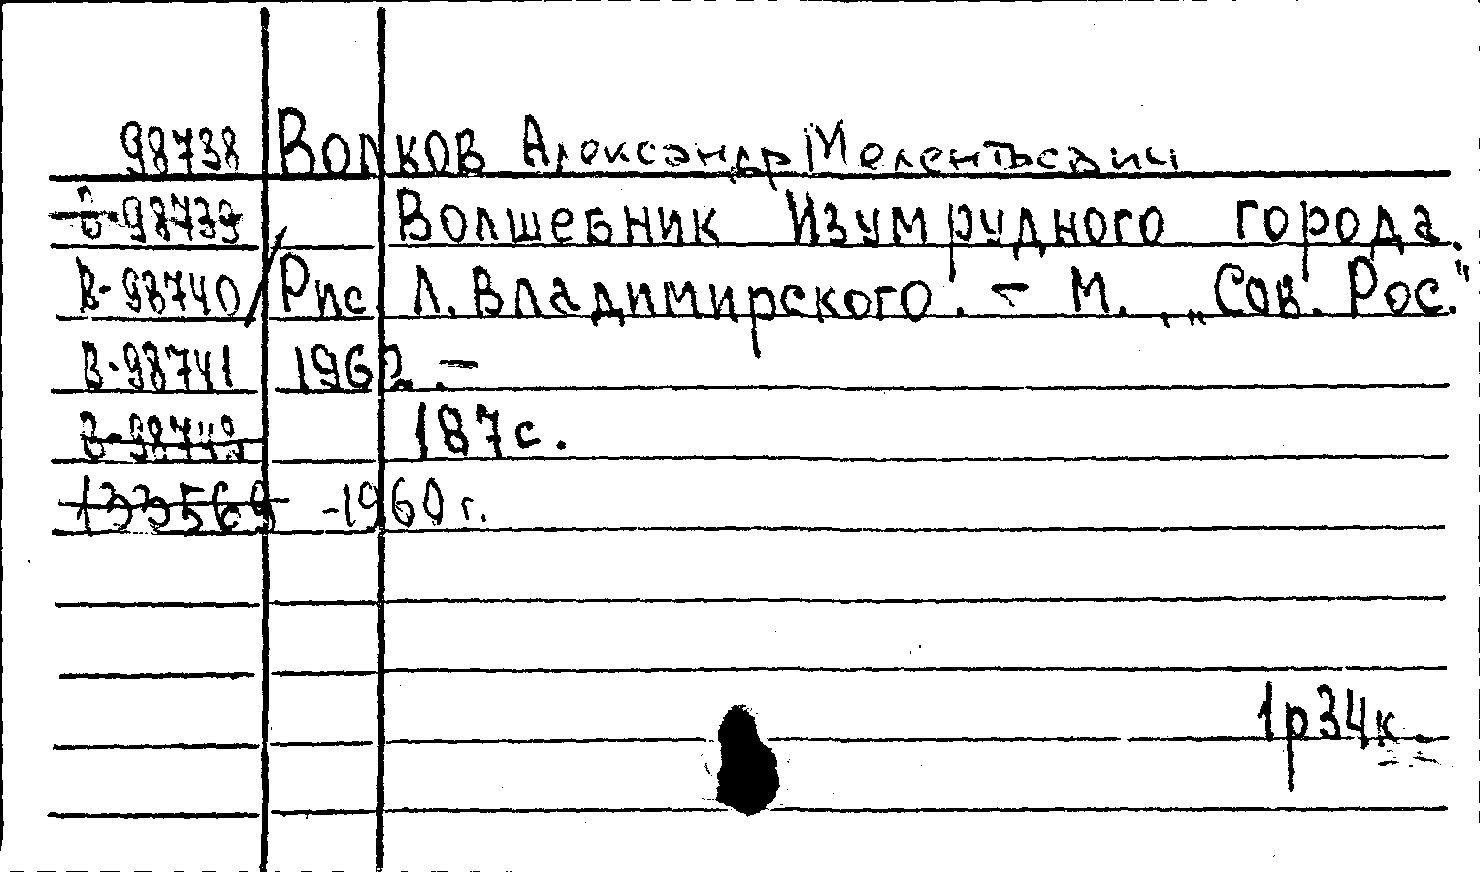 98738 Волков Александр Мелентьевич
В-98739 Волшебник Изумрудного города.
В-98740 / Рис Л. Владимирского. - М. „Сов. Рос."
В-98741 1962. -
В-98743 187с.
133569 -1960г.
1р34к.